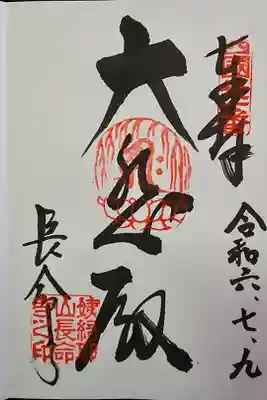 奉拝
令和六、七、九
大悲殿
長命寺
姨綺耶
山長命
寺之印